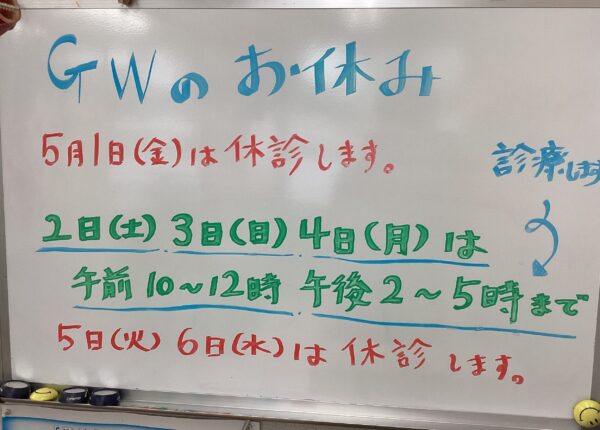 GWのお休み
5月1日(金)は休診します。
診療します
2日(土) 3日(日) 4日(月)は
午前10~12時 午後2~5時まで
5日(火) 6日(水)は休診します。